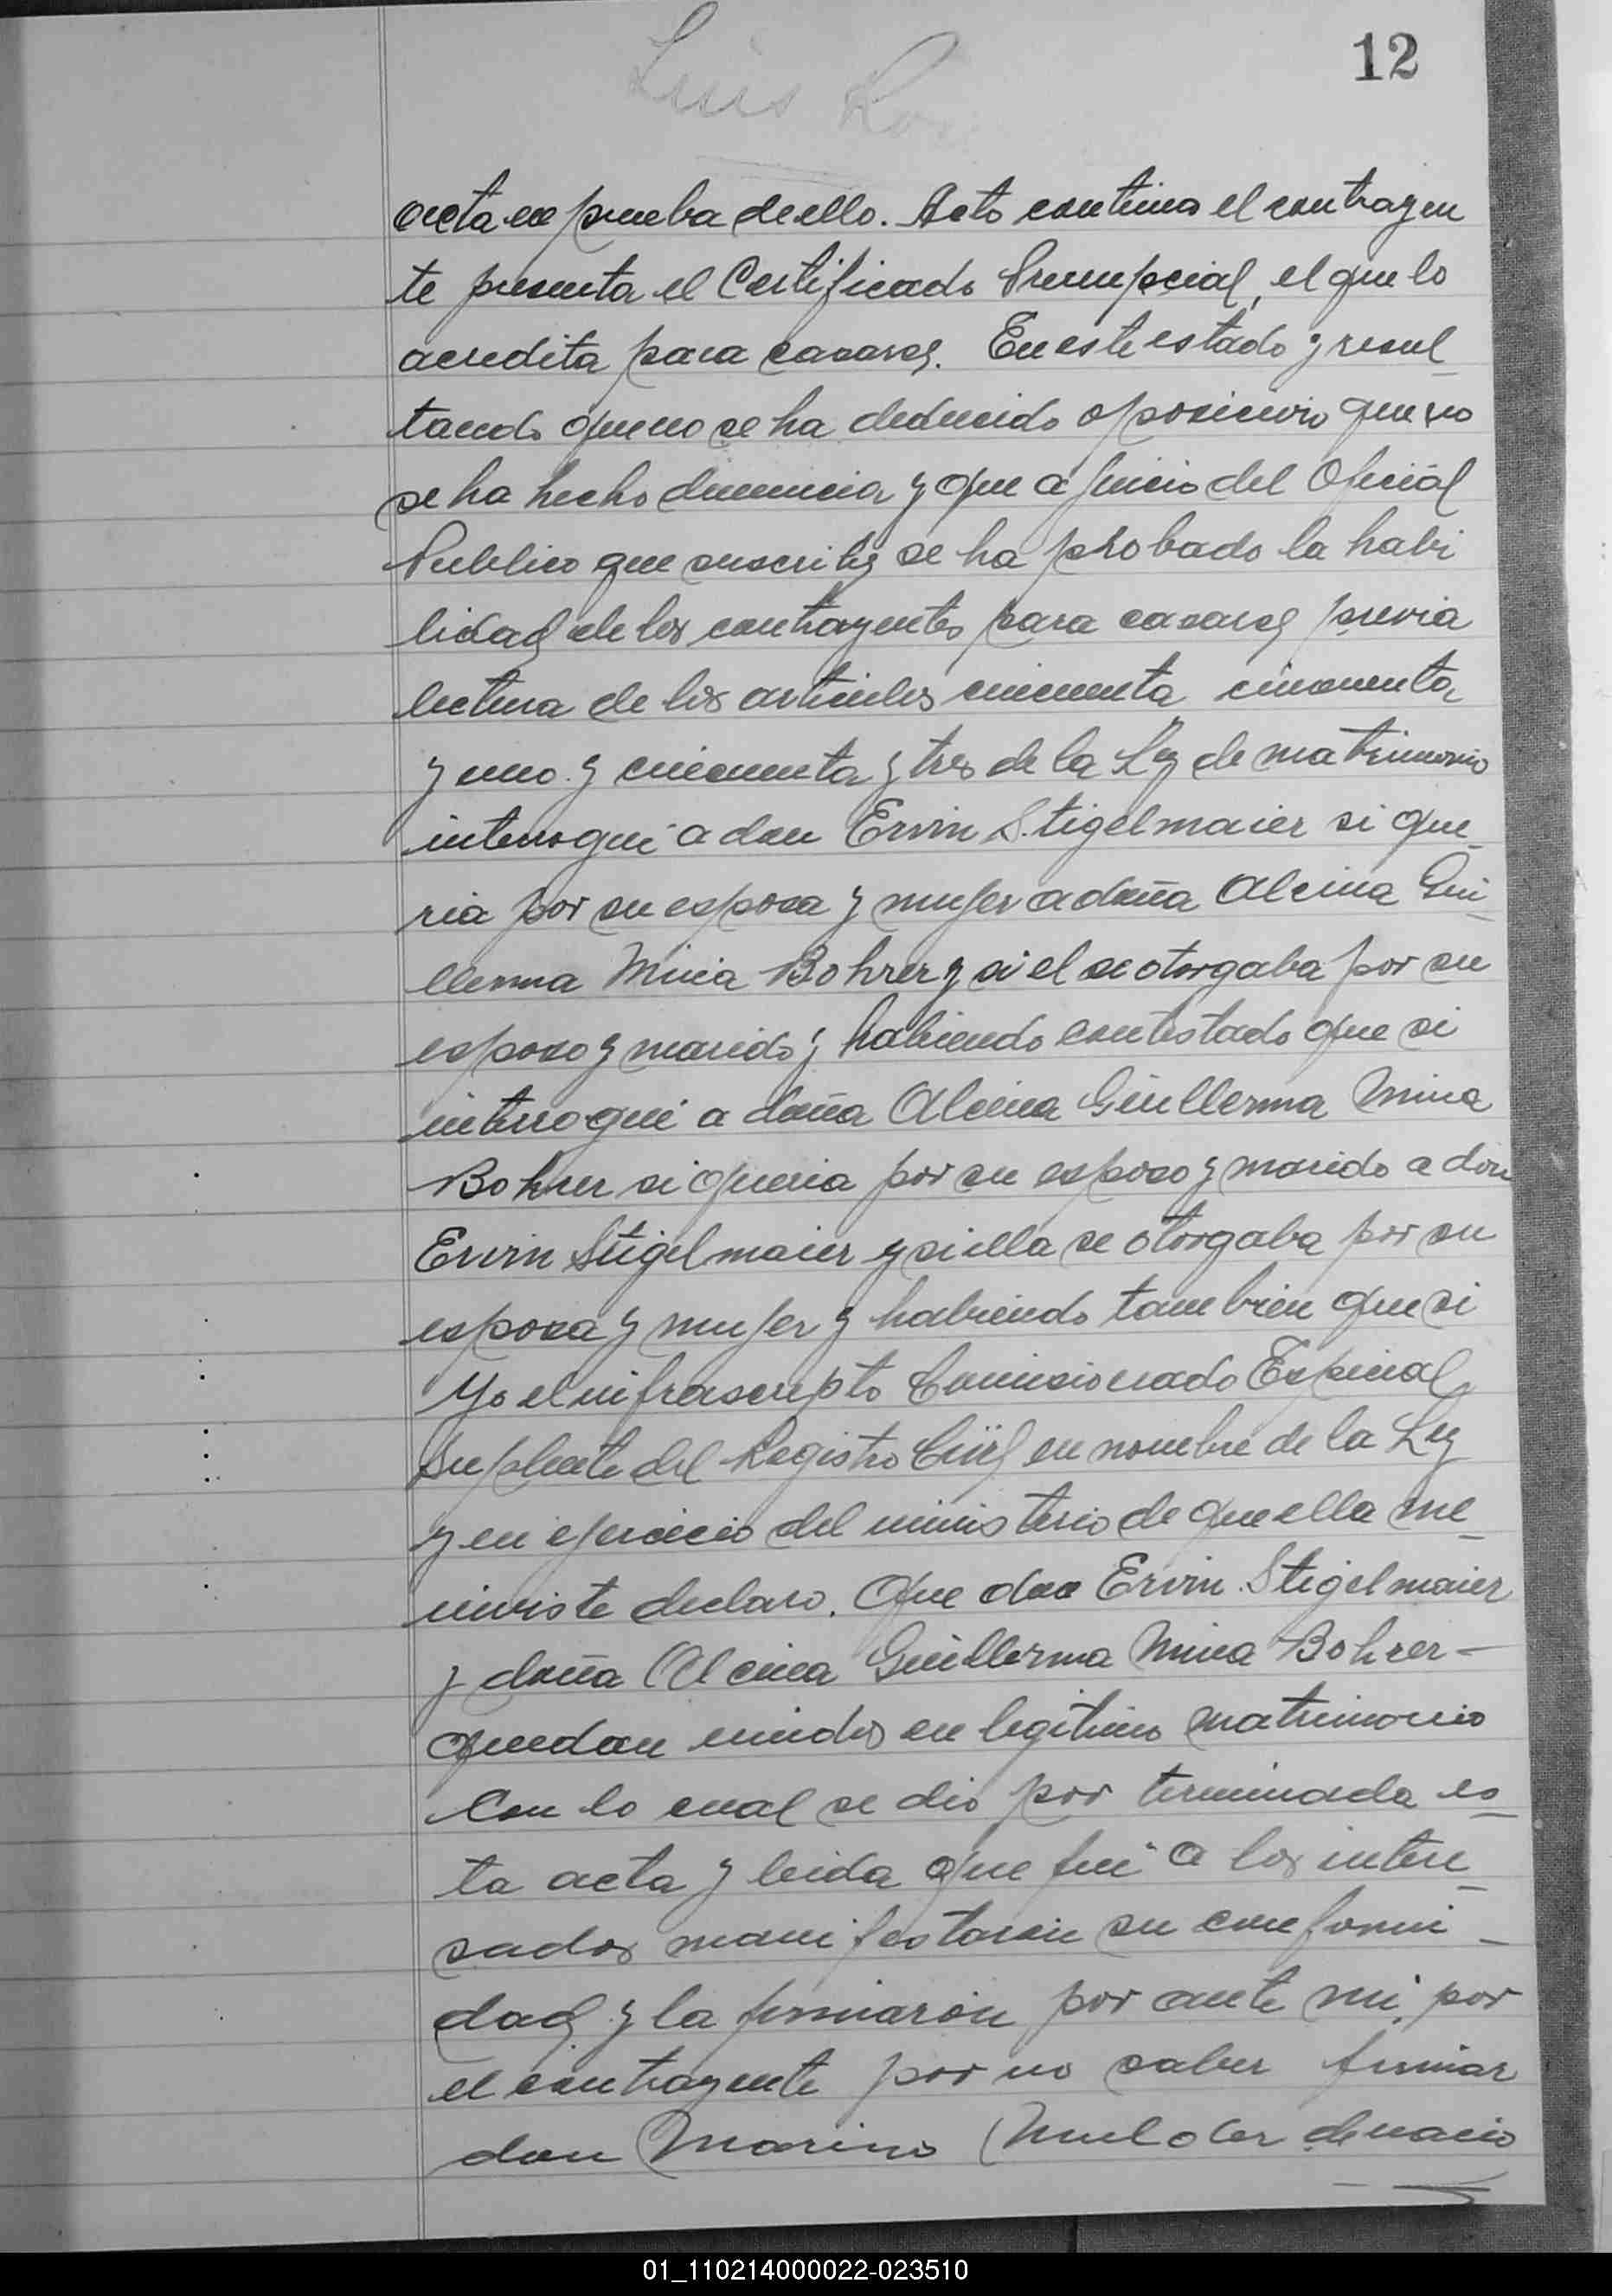 12
Luis
acta en prueba de ello. Acto continuo el contrayen
te presenta el Certificado Prenupcial, el que lo
acredita para casarse. En este estado y resul_
tando que no se ha deducido oposicion que no
se ha hecho denuncia y que a juicio del Oficial
Publico que suscribe se ha probado la habi
lidad de los contrayentes para casarse previa
lectura de los articulos cincuenta cincuenta
y uno y cincuenta y tres de la Ley de matrimonio
interrogué a don Ervin Stigelmaier si que_
ria por su esposa y mujer a doña Alcina Gui_
llerma Mina Bohrer y si el se otorgaba por su
esposo y marido y habiendo contestado que si
interrogué a doña Alcina Guillerma Mina
Bohrer si queria por su esposo y marido a don
Ervin Stigelmaier y si ella se otorgaba por su
esposa y mujer y habiendo tambien que si
Yo el infrascripto Comisionado Especial
Suplente del Registro Civil en nombre de la Ley
y en ejercicio del ministerio de que ella me_
inviste declaro. Que don Ervin Stigelmaier
y doña Alcina Guillerma Mina Bohrer -
quedan unidos en legitimo matrimonio
Con lo cual se dio por terminada es_
ta acta y leida que fué a los intere_
sados manifestaron su conformi_
dad y la firmaron por ante mi, por
el contrayente por no saber firmar
don Marino de nacio
01_110214000022-023510